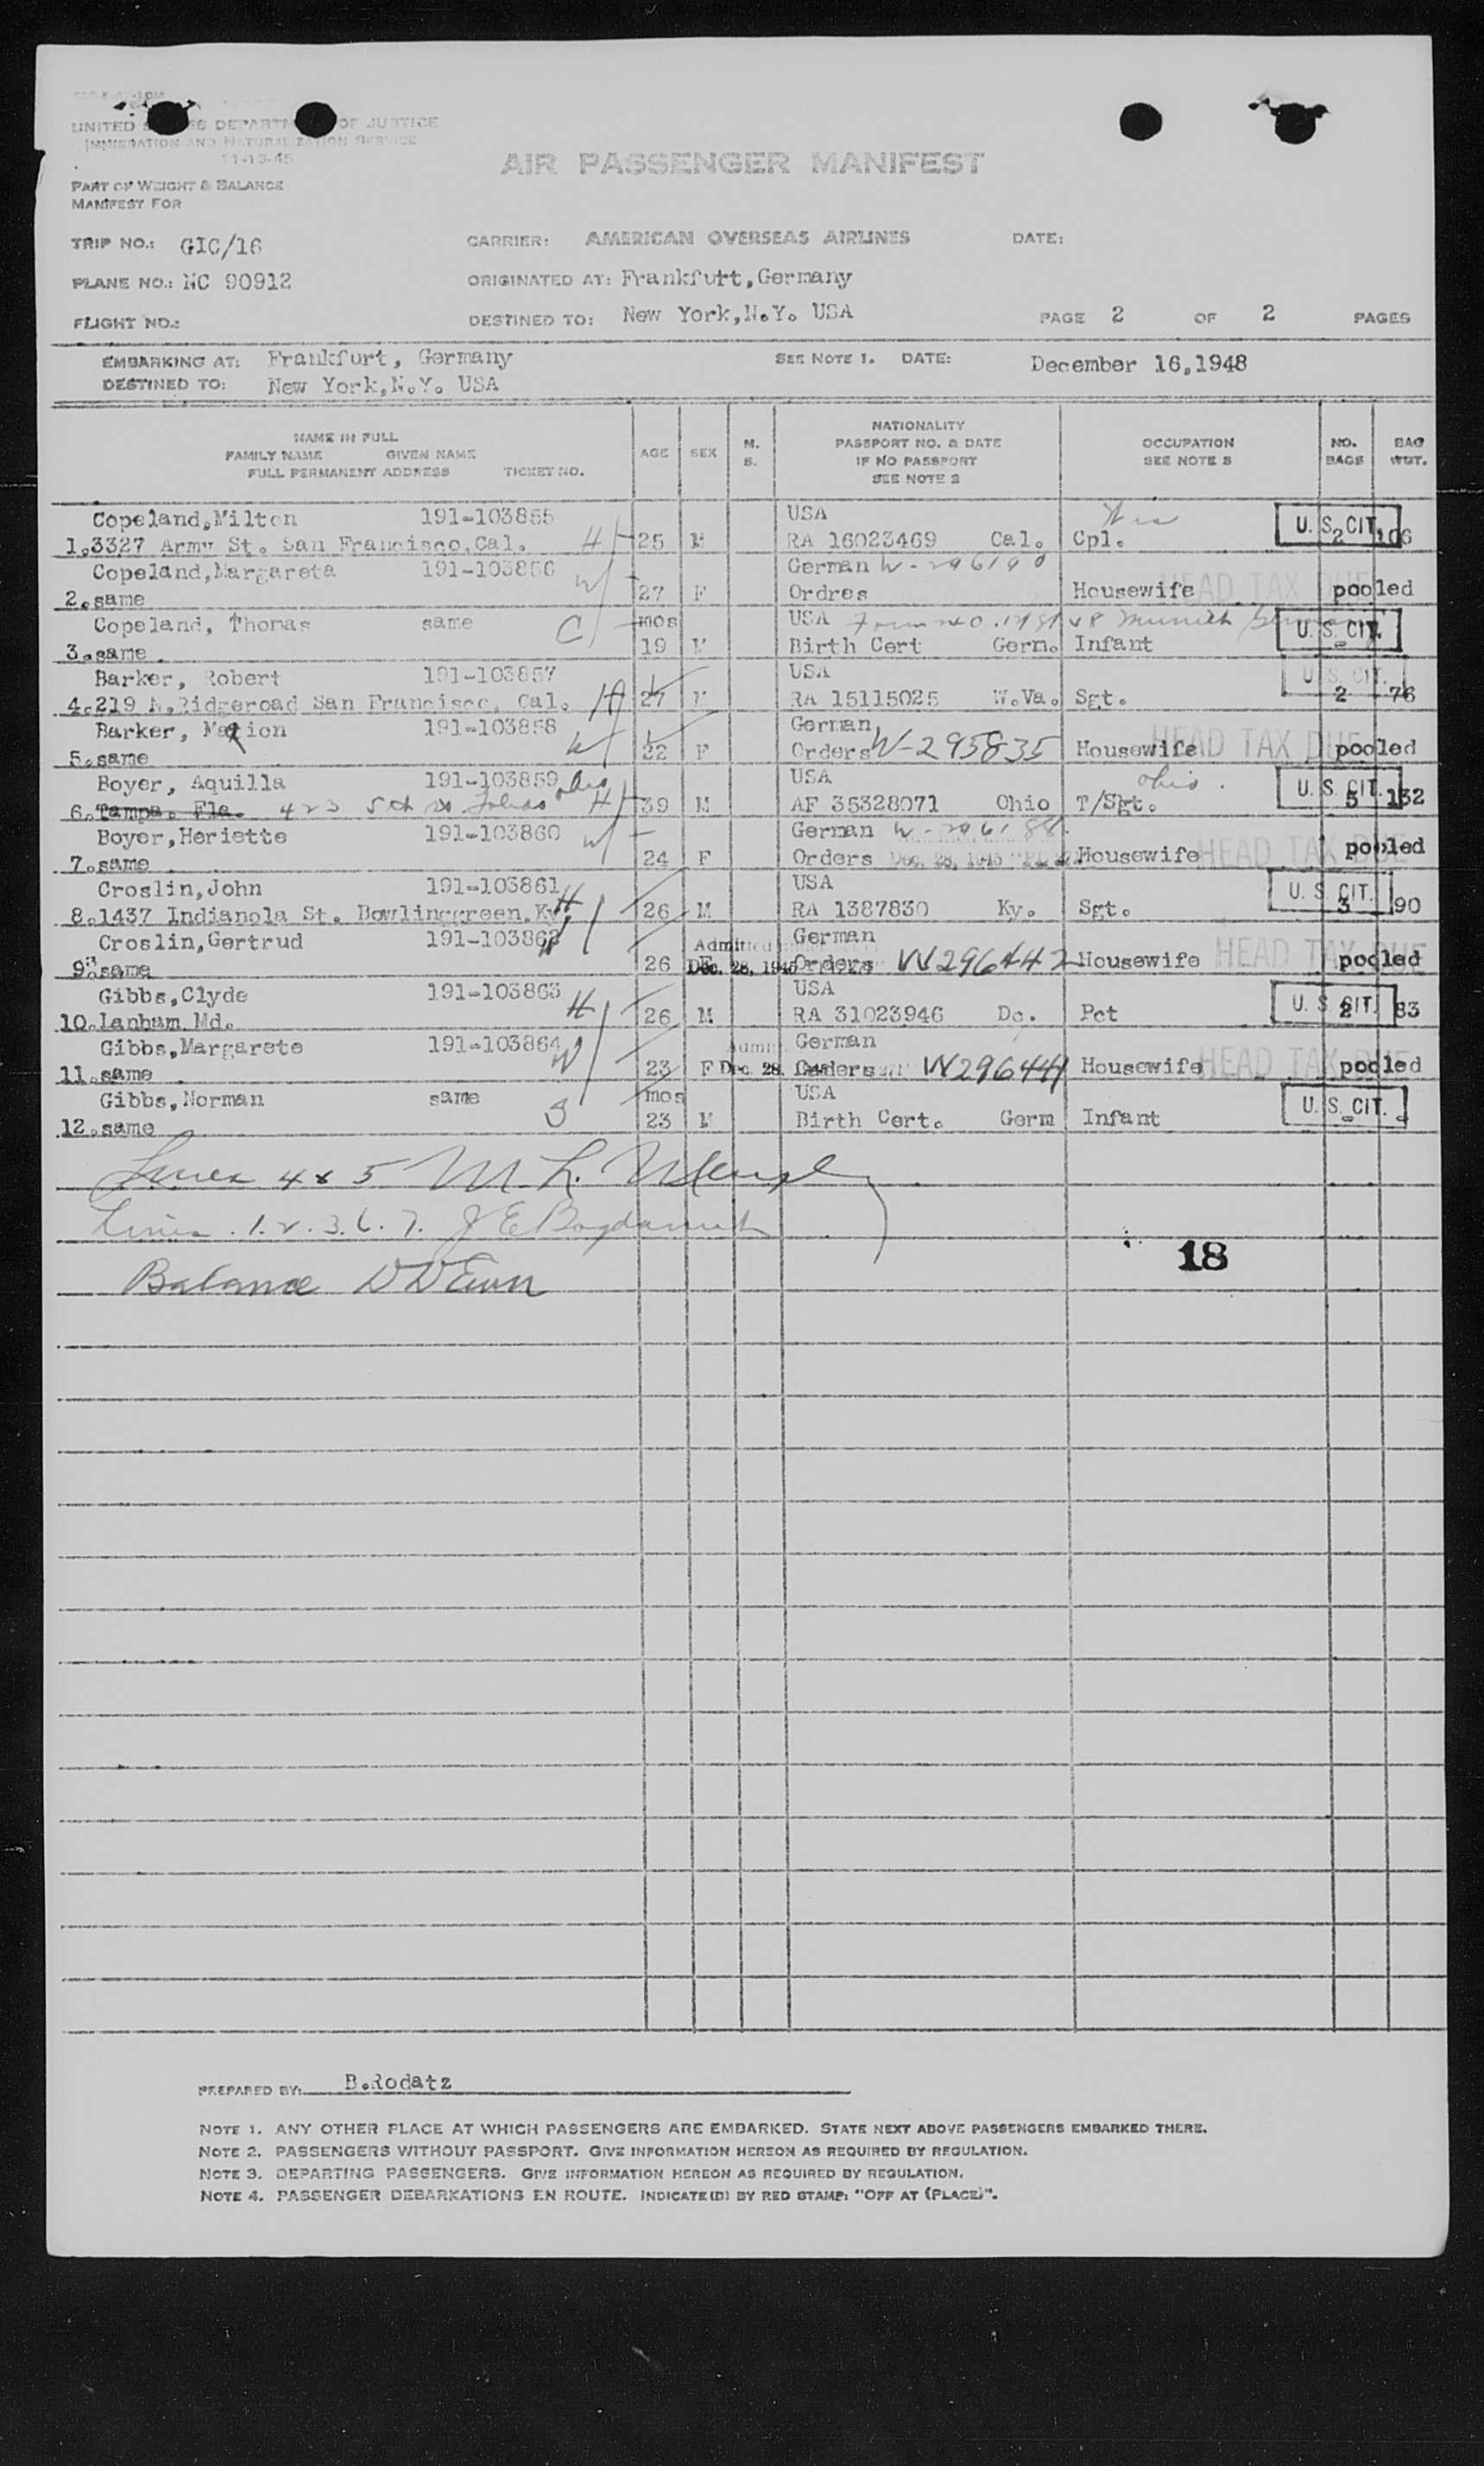 UNITED STATES DEPARTMENT OF JUSTICE
IMMIGRATION AND NATURALIZATION SERVICE
11-13-45
AIR PASSENGER MANIFEST
PART OF WEIGHT & BALANCE
MANIFEST FOR
TRIP NO.: GIC/16 CARRIER: AMERICAN OVERSEAS AIRLINES DATE:
PLANE NO.: NC 90912 ORIGINATED AT: Frankfurt,Germany
FLIGHT NO.: DESTINED TO: New York,N.Y. USA PAGE 2 OF 2 PAGES
EMBARKING AT: Frankfurt, Germany SEE NOTE 1. DATE: December 16,1948
DESTINED TO: New York,N.Y. USA
NAME IN FULL
FAMILY NAME GIVEN NAME
FULL PERMANENT ADDRESS TICKET NO.
AGE SEX M. S.
NATIONALITY
PASSPORT NO. & DATE
IF NO PASSPORT
SEE NOTE 2
OCCUPATION
SEE NOTE 3
NO. BAGS
BAG WGT.
Copeland,Milton 191-103855 USA U. S. CIT.
1.3327 Army St. San Francisco,Cal. H 25 M RA 16023469 Cal. Cpl. 2 106
Copeland,Margareta 191-103856 German W-296190
2.same W 27 F Ordres Housewife HEAD TAX DUE pooled
Copeland, Thomas same C mos USA Munich U. S. CIT.
3.same 19 M Birth Cert Germ. Infant -
Barker, Robert 191-103857 USA U. S. CIT.
4.219 N.Ridgeroad San Francisco, Cal. H 27 M RA 15115025 W.Va. Sgt. 2 76
Barker, Marion 191-103858 German
5.same W 22 F Orders W-295835 Housewife HEAD TAX DUE pooled
Boyer, Aquilla 191-103859 Ohio USA Ohio. U. S. CIT.
6.Tampa. Fla. 423 5th St Toledo H 39 M AF 35328071 Ohio T/Sgt. 5 132
Boyer,Heriette 191-103860 W German W-296188
7.same 24 F Orders Dec. 28, 1945 Housewife HEAD TAX DUE pooled
Croslin,John 191-103861 H USA U. S. CIT.
8.1437 Indianola St. Bowlinggreen,Ky. 26 M RA 1387830 Ky. Sgt. 3 90
Croslin,Gertrud 191-103862 W Admitted German
9.same 26 F Dec. 28, 1945 Orders W296442 Housewife HEAD TAX DUE pooled
Gibbs,Clyde 191-103863 H USA U. S. CIT.
10.Lanham Md. 26 M RA 31023946 Dc. Pct 2 83
Gibbs,Margarete 191-103864 W German
11.same 23 F Dec. 28, Orders W296441 Housewife HEAD TAX DUE pooled
Gibbs,Norman same S mos USA U. S. CIT.
12.same 23 M Birth Cert. Germ Infant -
Lines 4 & 5 M. L.
Lines 1. 2. 3. 6. 7. J E
Balance
18
PREPARED BY: B.Rodatz
NOTE 1. ANY OTHER PLACE AT WHICH PASSENGERS ARE EMBARKED. STATE NEXT ABOVE PASSENGERS EMBARKED THERE.
NOTE 2. PASSENGERS WITHOUT PASSPORT. GIVE INFORMATION HEREON AS REQUIRED BY REGULATION.
NOTE 3. DEPARTING PASSENGERS. GIVE INFORMATION HEREON AS REQUIRED BY REGULATION.
NOTE 4. PASSENGER DEBARKATIONS EN ROUTE. INDICATE(D) BY RED STAMP: "OFF AT (PLACE)".